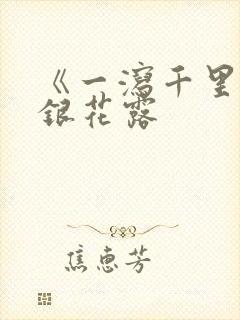 《一泻千里
银花露
焦惠芳